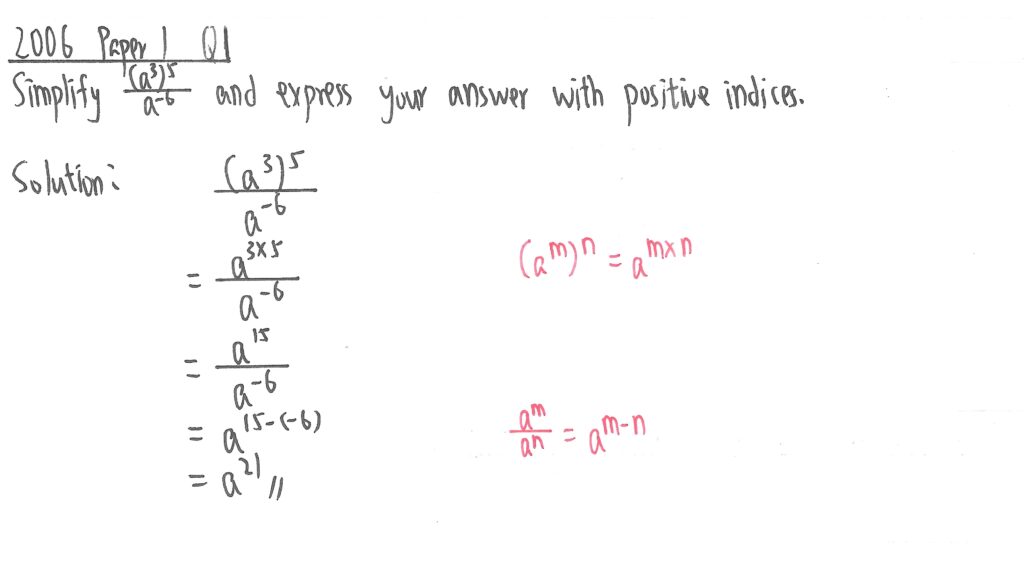 2006 Paper 1 Q1
Simplify (a³)⁵/a⁻⁶ and express your answer with positive indices.
Solution: (a³)⁵/a⁻⁶
= a³ˣ⁵/a⁻⁶ (aᵐ)ⁿ = aᵐˣⁿ
= a¹⁵/a⁻⁶
= a¹⁵⁻⁽⁻⁶⁾ aᵐ/aⁿ = aᵐ⁻ⁿ
= a²¹ //